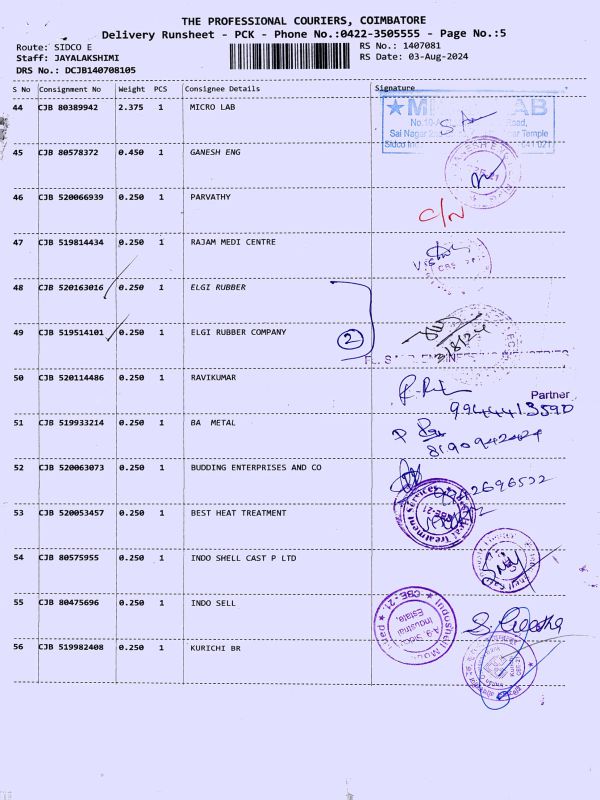 THE PROFESSIONAL COURIERS, COIMBATORE
Delivery Runsheet - PCK - Phone No.:0422-3505555 - Page No.:5
Route: SIDCO E RS No.: 1407081
Staff: JAYALAKSHMI RS Date: 03-Aug-2024
DRS No.: DCJB140708105
S No Consignment No Weight PCS Consignee Details Signature
44 CJB 80389942 2.375 1 MICRO LAB
45 CJB 80578372 0.450 1 GANESH ENG
46 CJB 520066939 0.250 1 PARVATHY C/N
47 CJB 519814434 0.250 1 RAJAM MEDI CENTRE
48 CJB 520163016 0.250 1 ELGI RUBBER
49 CJB 519514101 0.250 1 ELGI RUBBER COMPANY 2 3/8/24
50 CJB 520114486 0.250 1 RAVIKUMAR
Partner
9944413590
51 CJB 519933214 0.250 1 BA METAL
8190942424
52 CJB 520063073 0.250 1 BUDDING ENTERPRISES AND CO
53 CJB 520053457 0.250 1 BEST HEAT TREATMENT
54 CJB 80575955 0.250 1 INDO SHELL CAST P LTD
55 CJB 80475696 0.250 1 INDO SELL
56 CJB 519982408 0.250 1 KURICHI BR